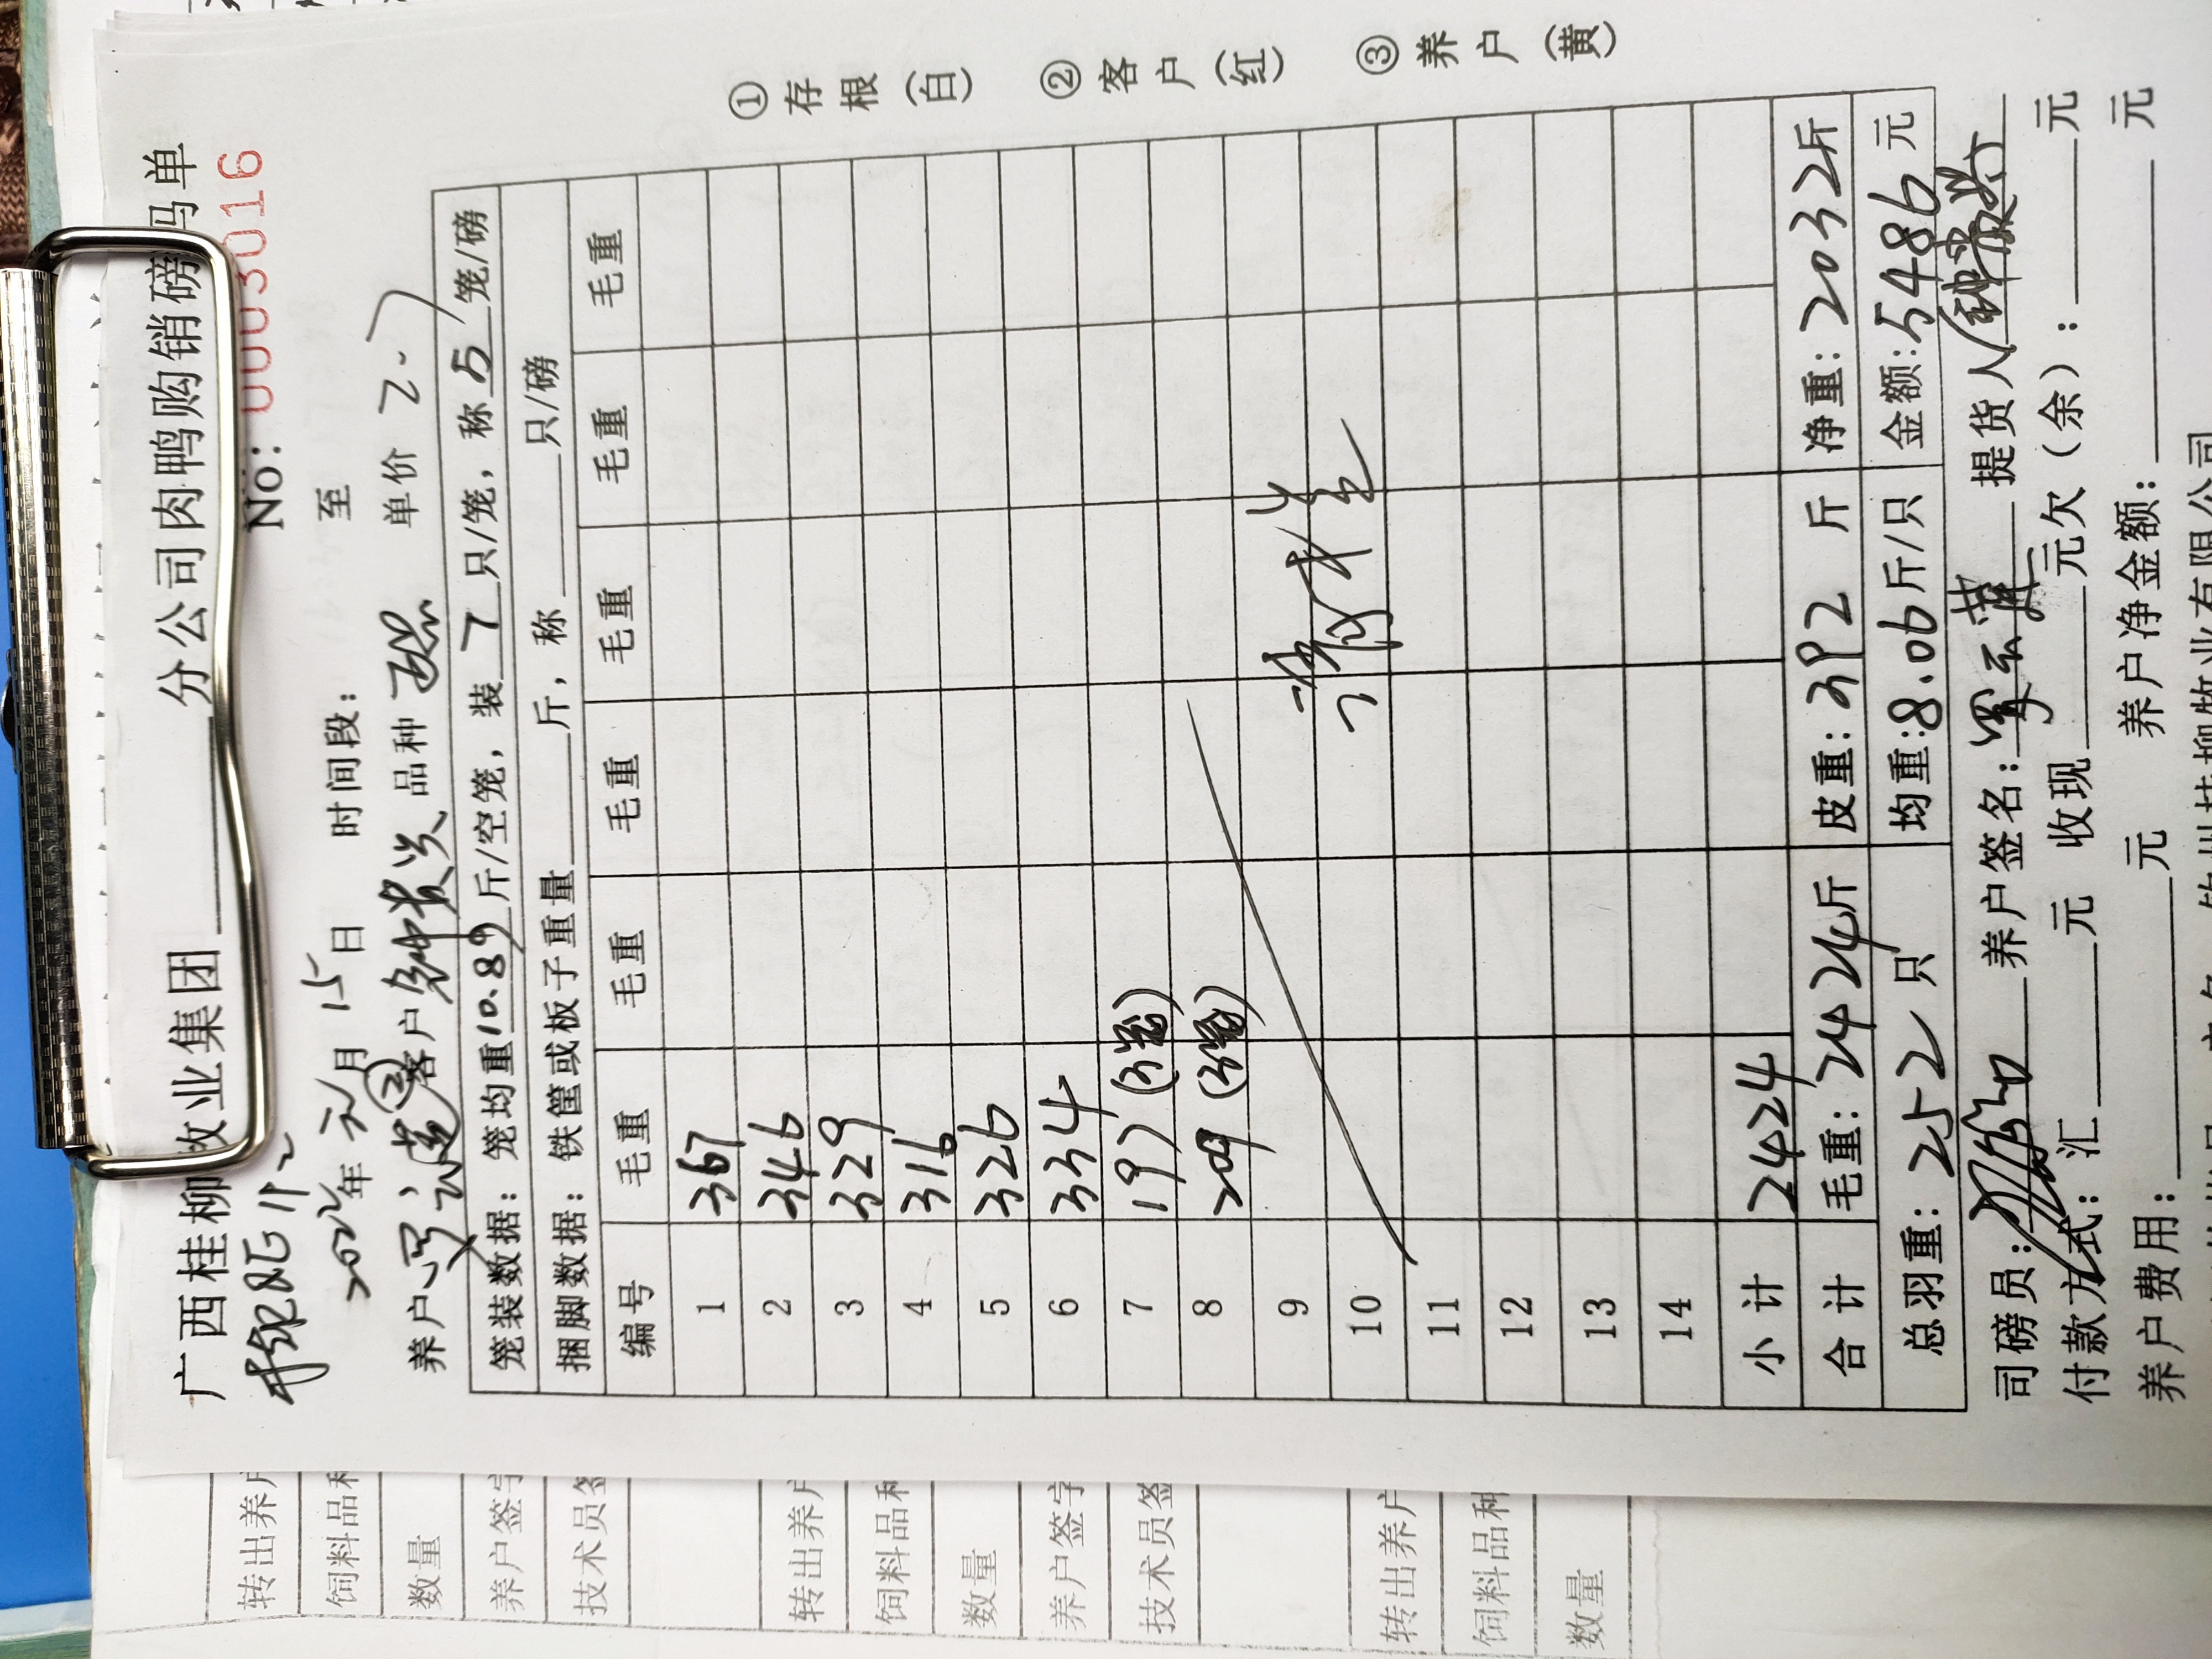 广西桂柳牧业集团 分公司肉鸭购销磅码单
No: 0003016
2025年元月15日 时间段: 至
养户 客户 品种 单价 2.7
笼装数据: 笼均重10.89斤/空笼, 装7只/笼, 称5笼/磅
捆脚数据: 铁筐或板子重量 斤, 称 只/磅
编号 毛重 毛重 毛重 毛重 毛重 毛重
1 367
2 346
3 329
4 316
5 326
6 334
7 197 (3笼)
8 209 (3笼)
9
10
11
12
13
14
小计 2424
合计 毛重: 2424斤 皮重: 392斤 净重: 2032斤
总羽重: 252只 均重: 8.06斤/只 金额: 5486元
司磅员: 养户签名: 提货人
付款方式: 汇 元 收现 元欠(余): 元
养户费用: 元 养户净金额: 元
①存根(白) ②客户(红) ③养户(黄)
转出养户
饲料品种
数量
养户签字
技术员签
转出养户
饲料品种
数量
养户签字
技术员签
转出养户
饲料品种
数量